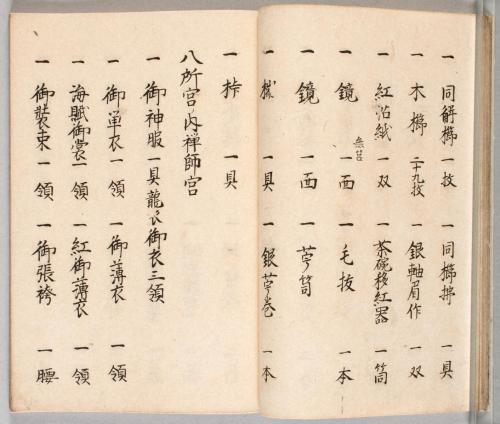 一 同解櫛 一枚 一 同櫛拂 一具
一 木櫛 二十九枚 一 銀軸眉作 一双
一 紅沾紙 一双 一 茶碗移紅器 一筒
一 鏡 無筥 一面 一 毛抜 一本
一 鏡 一面 一 莩筒
一 一具 一 銀莩巻 一本
一 一具
八所宮内禅師宮
一 御神服一具龍衣御衣三領
一 御単衣 一領 一 御薄衣 一領
一 海賦御裳 一領 一 紅御薄衣 一領
一 御装束 一領 一 御張袴 一腰